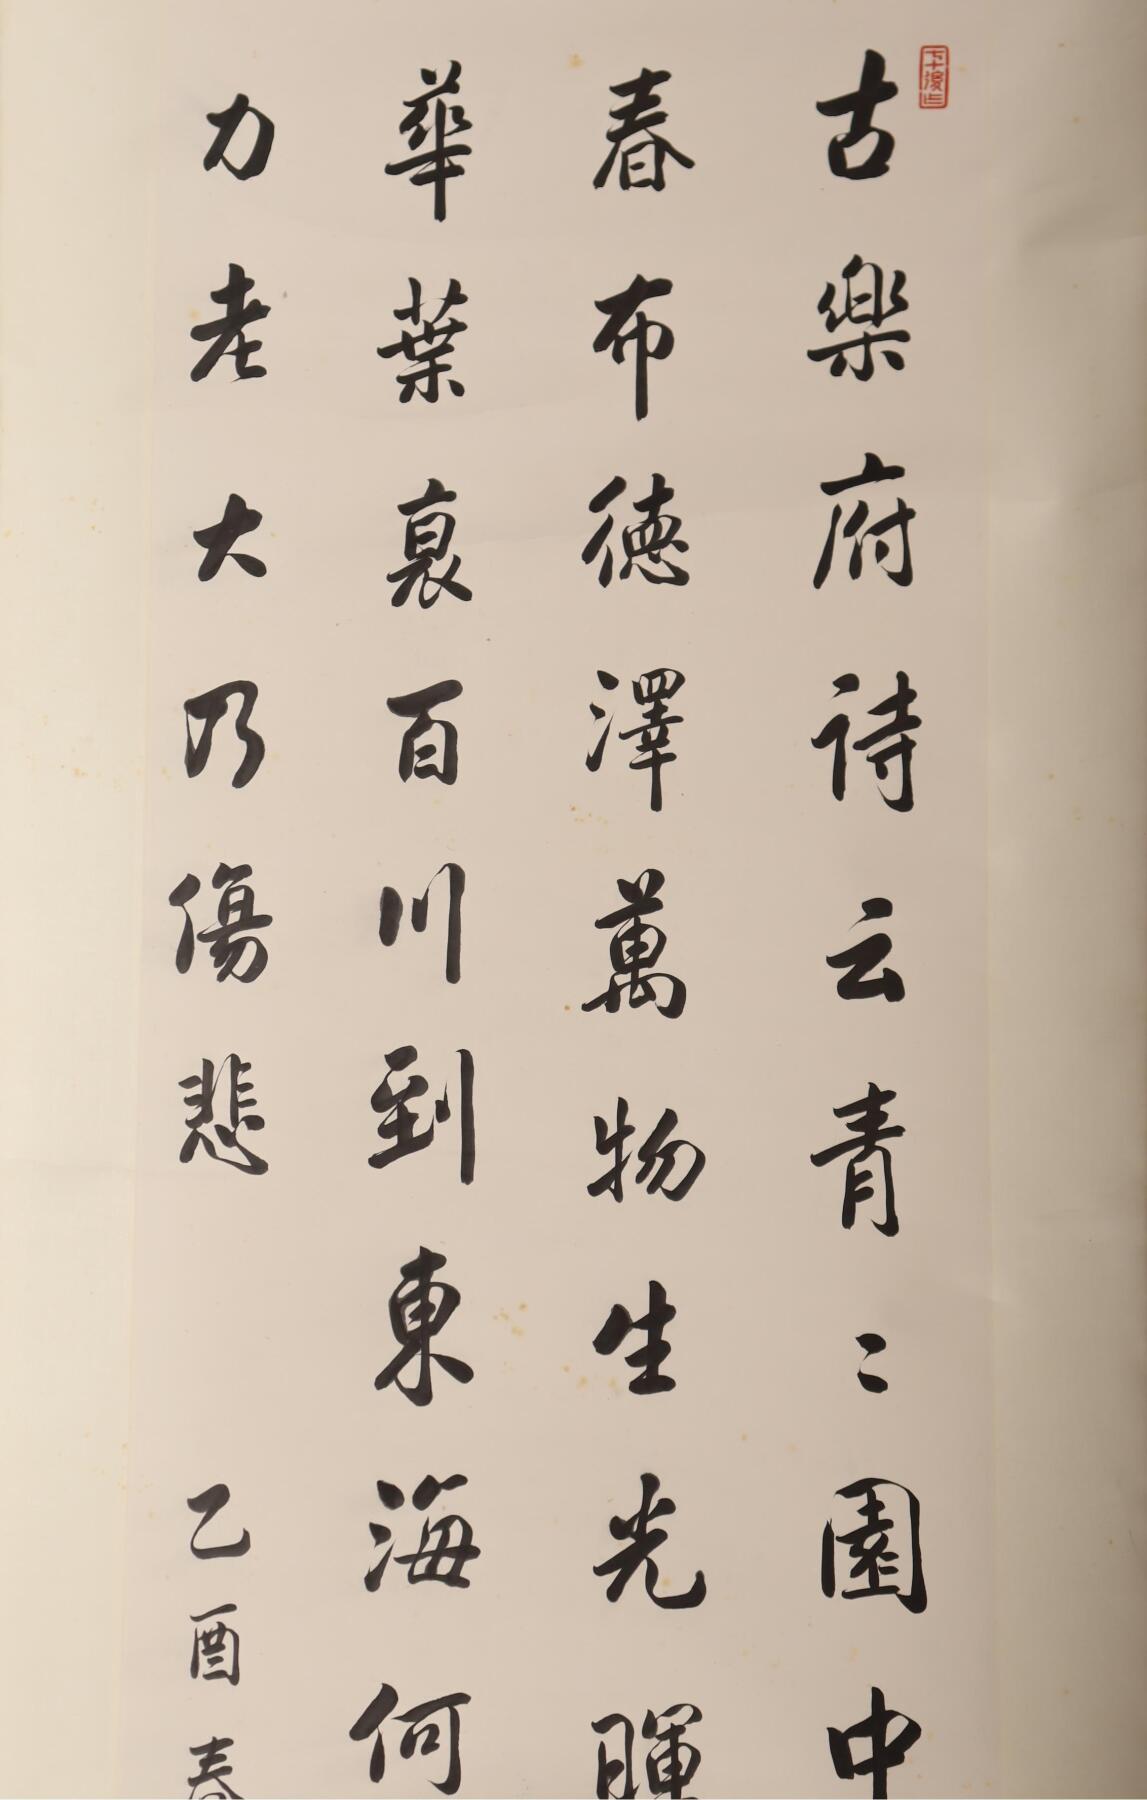 古樂府詩云青〻園中
春布德澤萬物生光暉
華葉衰百川到東海何
力老大乃傷悲 乙酉春